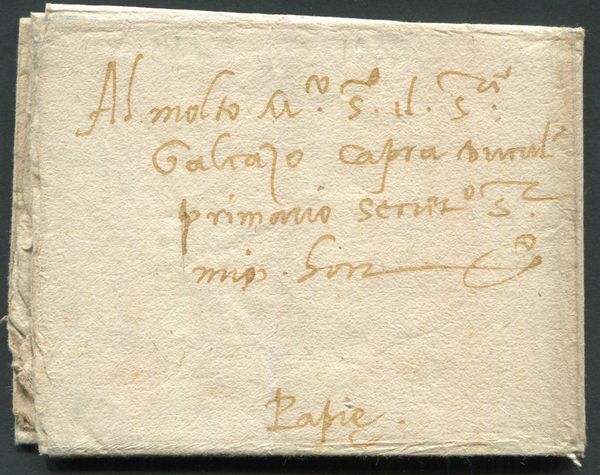 Al molto M.co S.r il S.or
Galeazo Capra ducal
primario secret.o S.r
mio. hon.
Papie.